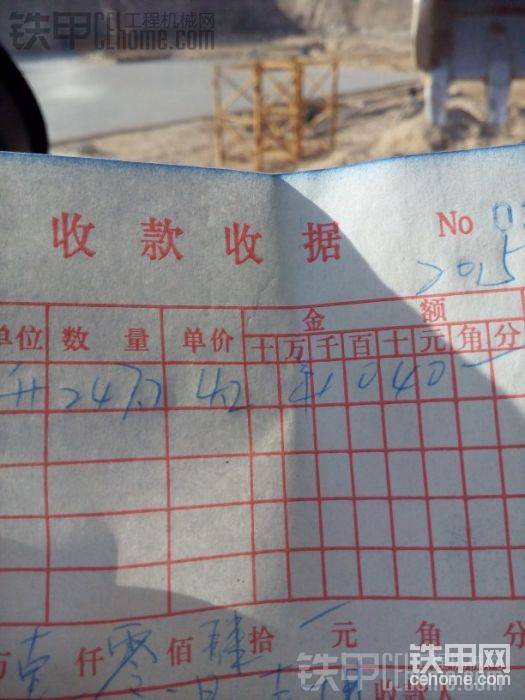 铁甲 工程机械网
CEhome.com
收款收据 No 0
2015
单位 数量 单价 金额
十 万 千 百 十 元 角 分
升 247.7 4.2 ¥1 0 4 0
万 壹 仟 零 佰 肆 拾 元 角 分
铁甲
铁甲网
cehome.com